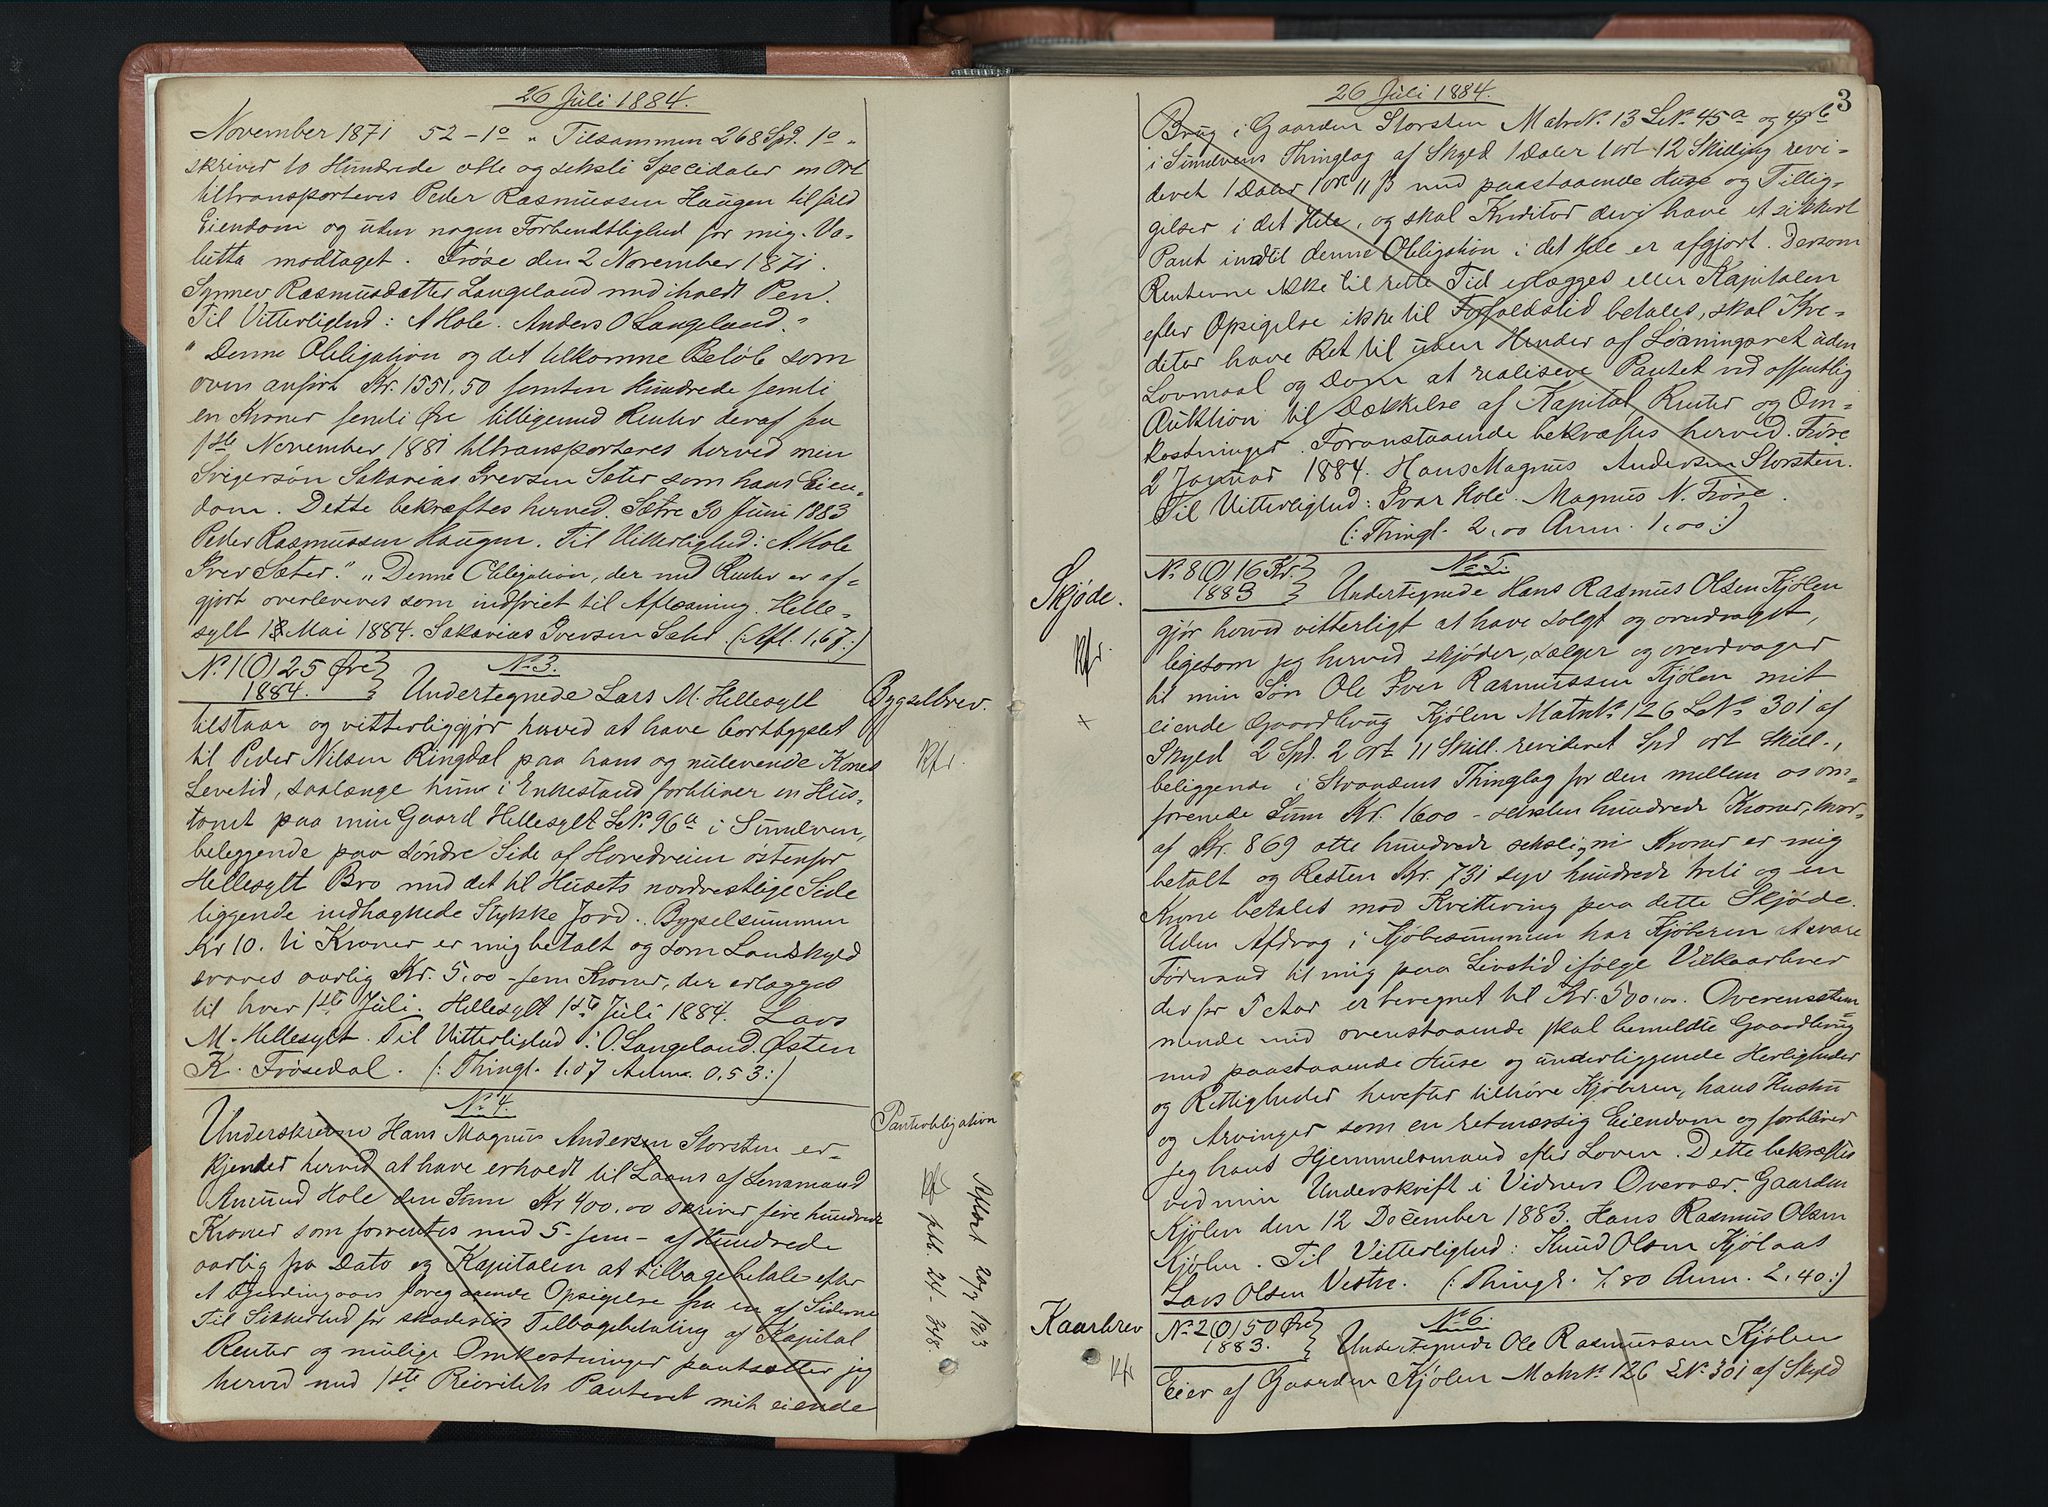 26 Juli 1884.
November 1871 52 - 1º " Tilsammen 268 Spd. 1º "
skriver to Hundrede otte og seksti Specidaler en Ort
tiltransporteres Peder Rasmussen Haugen til fuld
Eiendom og uden nogen Forbendtlighed for mig. Va-
lutta modtaget. Frøse den 2 November 1871.
Synnev Rasmusdatter Langeland med iholdt Pen.
Til Vitterlighed: A Hole. Anders O Langeland."
"Denne Obligation og det tilkomne Beløb som
oven anført Kr. 1551,50 femten Hundrede femti
en Kroner femti Øre tilligemed Renter deraf fra
1ste November 1881 tiltransporteres herved min
Svigersøn Sakarias Iversen Sæter som hans Eien-
dom. Dette bekræftes herved. Sætre 30 Juni 1883
Peder Rasmussen Haugen. Til Vitterlighed: A. Hole
Iver Sæter." "Denne Obligation, der med Renter er af-
gjort overleveres som indfriet til Aflæsning. Helle-
sylt 13 Mai 1884. Sakarias Iversen Sæter. (: Afl. 1,67 :)
No. 1 (O) 25 Øre
1884.
No. 3.
Bygselbrev.
Undertegnede Lars M. Hellesylt
tilstaar og vitterliggjør herved at have bortbygslet
til Peder Nilsen Ringdal paa hans og nulevende Kones
Levetid, saalænge hun i Enkestand forbliver en Hus-
tomt paa min Gaard Hellesylt LNo. 96a i Sunelven,
beleggende paa søndre Side af Hovedveien østenfor
Hellesylt Bro med det til Husets nordvestlige Side
liggende indhægnede Stykke Jord. Bygselsummen
Kr 10. ti Kroner er mig betalt og som Landskyld
svares aarlig Kr. 5,00 - fem Kroner, der erlægges
til hver 1ste Juli. Hellesylt 1ste Juli 1884. Lars
M. Hellesylt. Til Vitterlighed: O. Langeland. Østen
K. Frøsedal. (: Thingl. 1.07 Anm. 0,53 :)
No. 4.
Panteobligation
Underskrevne Hans Magnus Andersen Storsten er-
kjender herved at have erholdt til Laans af Lensmand
Amund Hole den Sum Kr 400,00 skriver fire hundrede
Kroner som forrentes med 5 - fem - af Hundrede
aarlig fra Dato og Kapitalen at tilbagebetale efter
et Fjerdingaars foregaaende Opsigelse fra en af Siderne
Til Sikkerhed for skadesløs Tilbagebetaling af Kapital
Renter og mulige Omkostninger pantsætter jeg
herved med 1ste Prioritets Panteret mit eiende
Aflæst 20/2 1903
ptb. 21. 348.
26 Juli 1884.
3
Brug i Gaarden Storsten Matr No. 13 LNo. 45a og 45b
i Sunelvens Thinglag af Skyld 1 Daler 1 ort 12 Skilling revi-
deret 1 Daler 1 ort 11 β med paastaaende Huse og Tillig-
gelser i det Hele, og skal Kreditor deri have et sikkert
Pant indtil denne Obligation i det Hele er afgjort. Dersom
Renterne ikke til rette Tid erlægges eller Kapitalen
efter Opsigelse ikke til Forfaldstid betales, skal Kre-
ditor have Ret til uden Hinder af Løsningsret uden
Lovmaal og Dom at realisere Pantet ved offentlig
Auktion til Dækkelse af Kapital, Renter og Om-
kostninger. Foranstaaende bekræftes herved. Frøse
2 Januar 1884. Hans Magnus Andersen Storsten.
Til Vitterlighed: Ivar Hole. Magnus N. Frøse.
(: Thingl. 2,00 Anm. 1,00 :)
Skjøde.
No. 8 (O) 16 Kr.
1883
No. 5.
Undertegnede Hans Rasmus Olsen Kjølen
gjør herved vitterligt at have solgt og overdraget,
ligesom jeg herved skjøder, sælger og overdrager
til min Søn Ole Iver Rasmussen Kjølen mit
eiende Gaardbrug Kjølen Matr No. 126 LNo. 301 af
Skyld 2 Spd. 2 ort 11 Skill. revideret Spd ort Skill.,
beliggende i Strandens Thinglag for den mellem os om-
forenede Sum Kr. 1600 - seksten hundrede Kroner, hvor-
af Kr. 869 otte hundrede seksti ni Kroner er mig
betalt og Resten Kr. 731 syv hundrede treti og en
Krone betales mod Kvittering paa dette Skjøde.
Uden Afdrag i Kjøbesummen har Kjøberen at svare
Føderaad til mig paa Livstid ifølge Vilkaarbrev
der for 5 Aar er beregnet til Kr. 500,00. Overensstem
mende med ovenstaaende skal bemeldte Gaardbrug
med paastaaende Huse og underliggende Herligheder
og Rettigheder herefter tilhøre Kjøberen, hans Hustru
og Arvinger som en retmæssig Eiendom og forbliver
jeg hans Hjemmelsmand efter Loven. Dette bekræftes
ved min Underskrift i Vidners Overvær. Gaarden
Kjølen den 12 December 1883. Hans Rasmus Olsen
Kjølen. Til Vitterlighed: Knud Olsen Kjølaas
Lars Olsen Vestre. (: Thingl. 7.80 Anm. 2.40 :)
Kaarbrev
No. 2 (O) 50 Øre
1883.
No. 6.
Undertegnede Ole Rasmussen Kjølen
Eier af Gaarden Kjølen Matr No. 126 LNo. 301 af Skyld